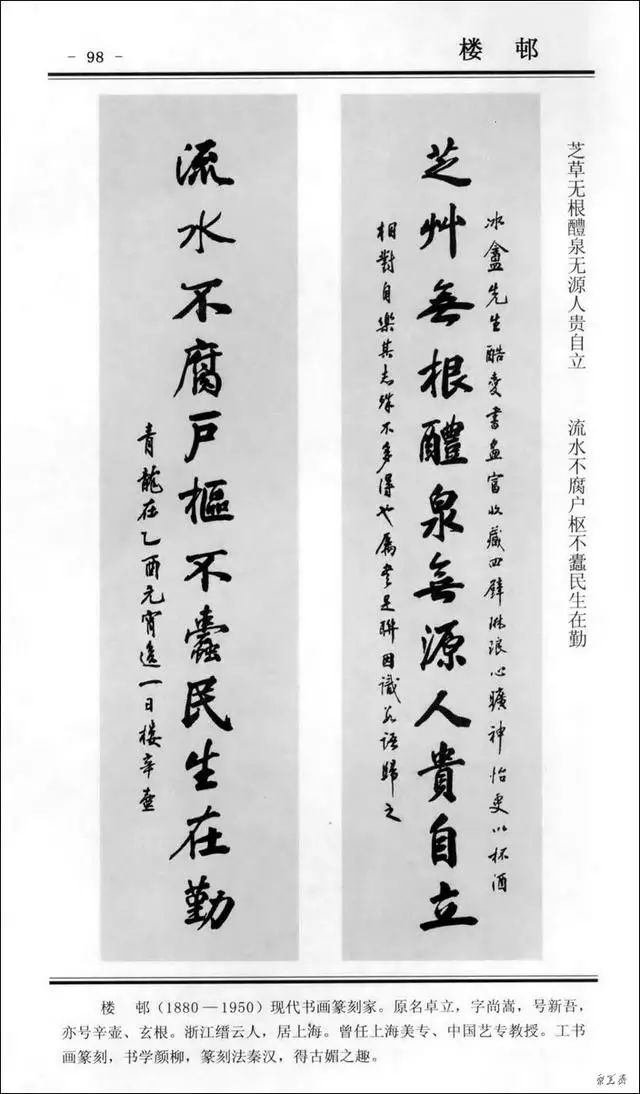 - 98 -
楼 邨
芝草无根醴泉无源人贵自立 流水不腐户枢不蠹民生在勤
冰盦先生酷爱书画富收藏四壁琳琅心旷神怡更以杯酒
芝艸無根醴泉無源人貴自立
相對自樂其志殊不多得也屬書是聯因識數語歸之
流水不腐戶樞不蠹民生在勤
青龍在乙酉元宵後一日樓辛壺
楼 邨（1880—1950）现代书画篆刻家。原名卓立，字尚嵩，号新吾，
亦号辛壶、玄根。浙江缙云人，居上海。曾任上海美专、中国艺专教授。工书
画篆刻，书学颜柳，篆刻法秦汉，得古媚之趣。